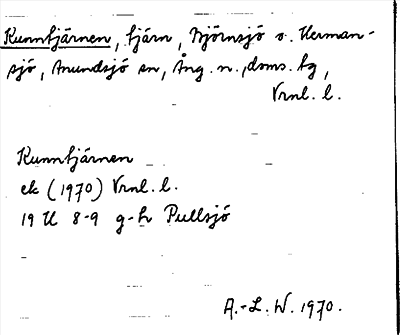 Kunntjärnen, tjärn, Björnsjö o. Herman-
sjö, Anundsjö sn, Ång. n., doms. bg,
Vrnl. l.
Kunntjärnen
ek (1970) Vrnl. l.
19 U 8-9 g-h Pullsjö
A.-L. W. 1970.